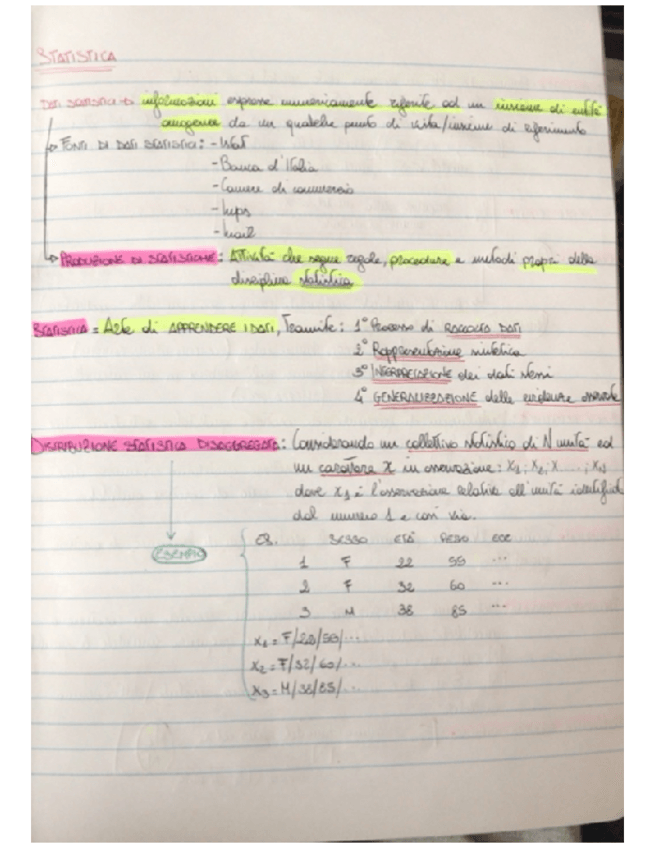 STATISTICA
DATI STATISTICI → informazioni espresse numericamente riferite ad un insieme di entità
omogenee da un qualche punto di vista/insieme di riferimento
→ FONTI DI DATI STATISTICI: - Istat
- Banca d'Italia
- Camere di commercio
- Inps
- Inail
→ PRODUZIONE DI STATISTICHE: Attività che segue regole, procedure e metodi propri della
disciplina statistica
STATISTICA = Arte di APPRENDERE I DATI, Tramite: 1° Processo di RACCOLTA DATI
2° Rappresentazione sintetica
3° INTERPRETAZIONE dei dati stessi
4° GENERALIZZAZIONE delle evidenze osservate
DISTRIBUZIONE STATISTICA DISAGGREGATA: Considerando un collettivo statistico di N unità ed
un carattere X in osservazione: X1; X2; X ....; XN
dove X1 è l'osservazione relativa all'unità identificata
dal numero 1 e così via.
ESEMPIO
ES. SESSO ETÀ PESO ECC
1 F 22 55 ...
2 F 32 60 ...
3 M 38 85 ...
X1 = F/22/55/...
X2 = F/32/60/...
X3 = M/38/85/...